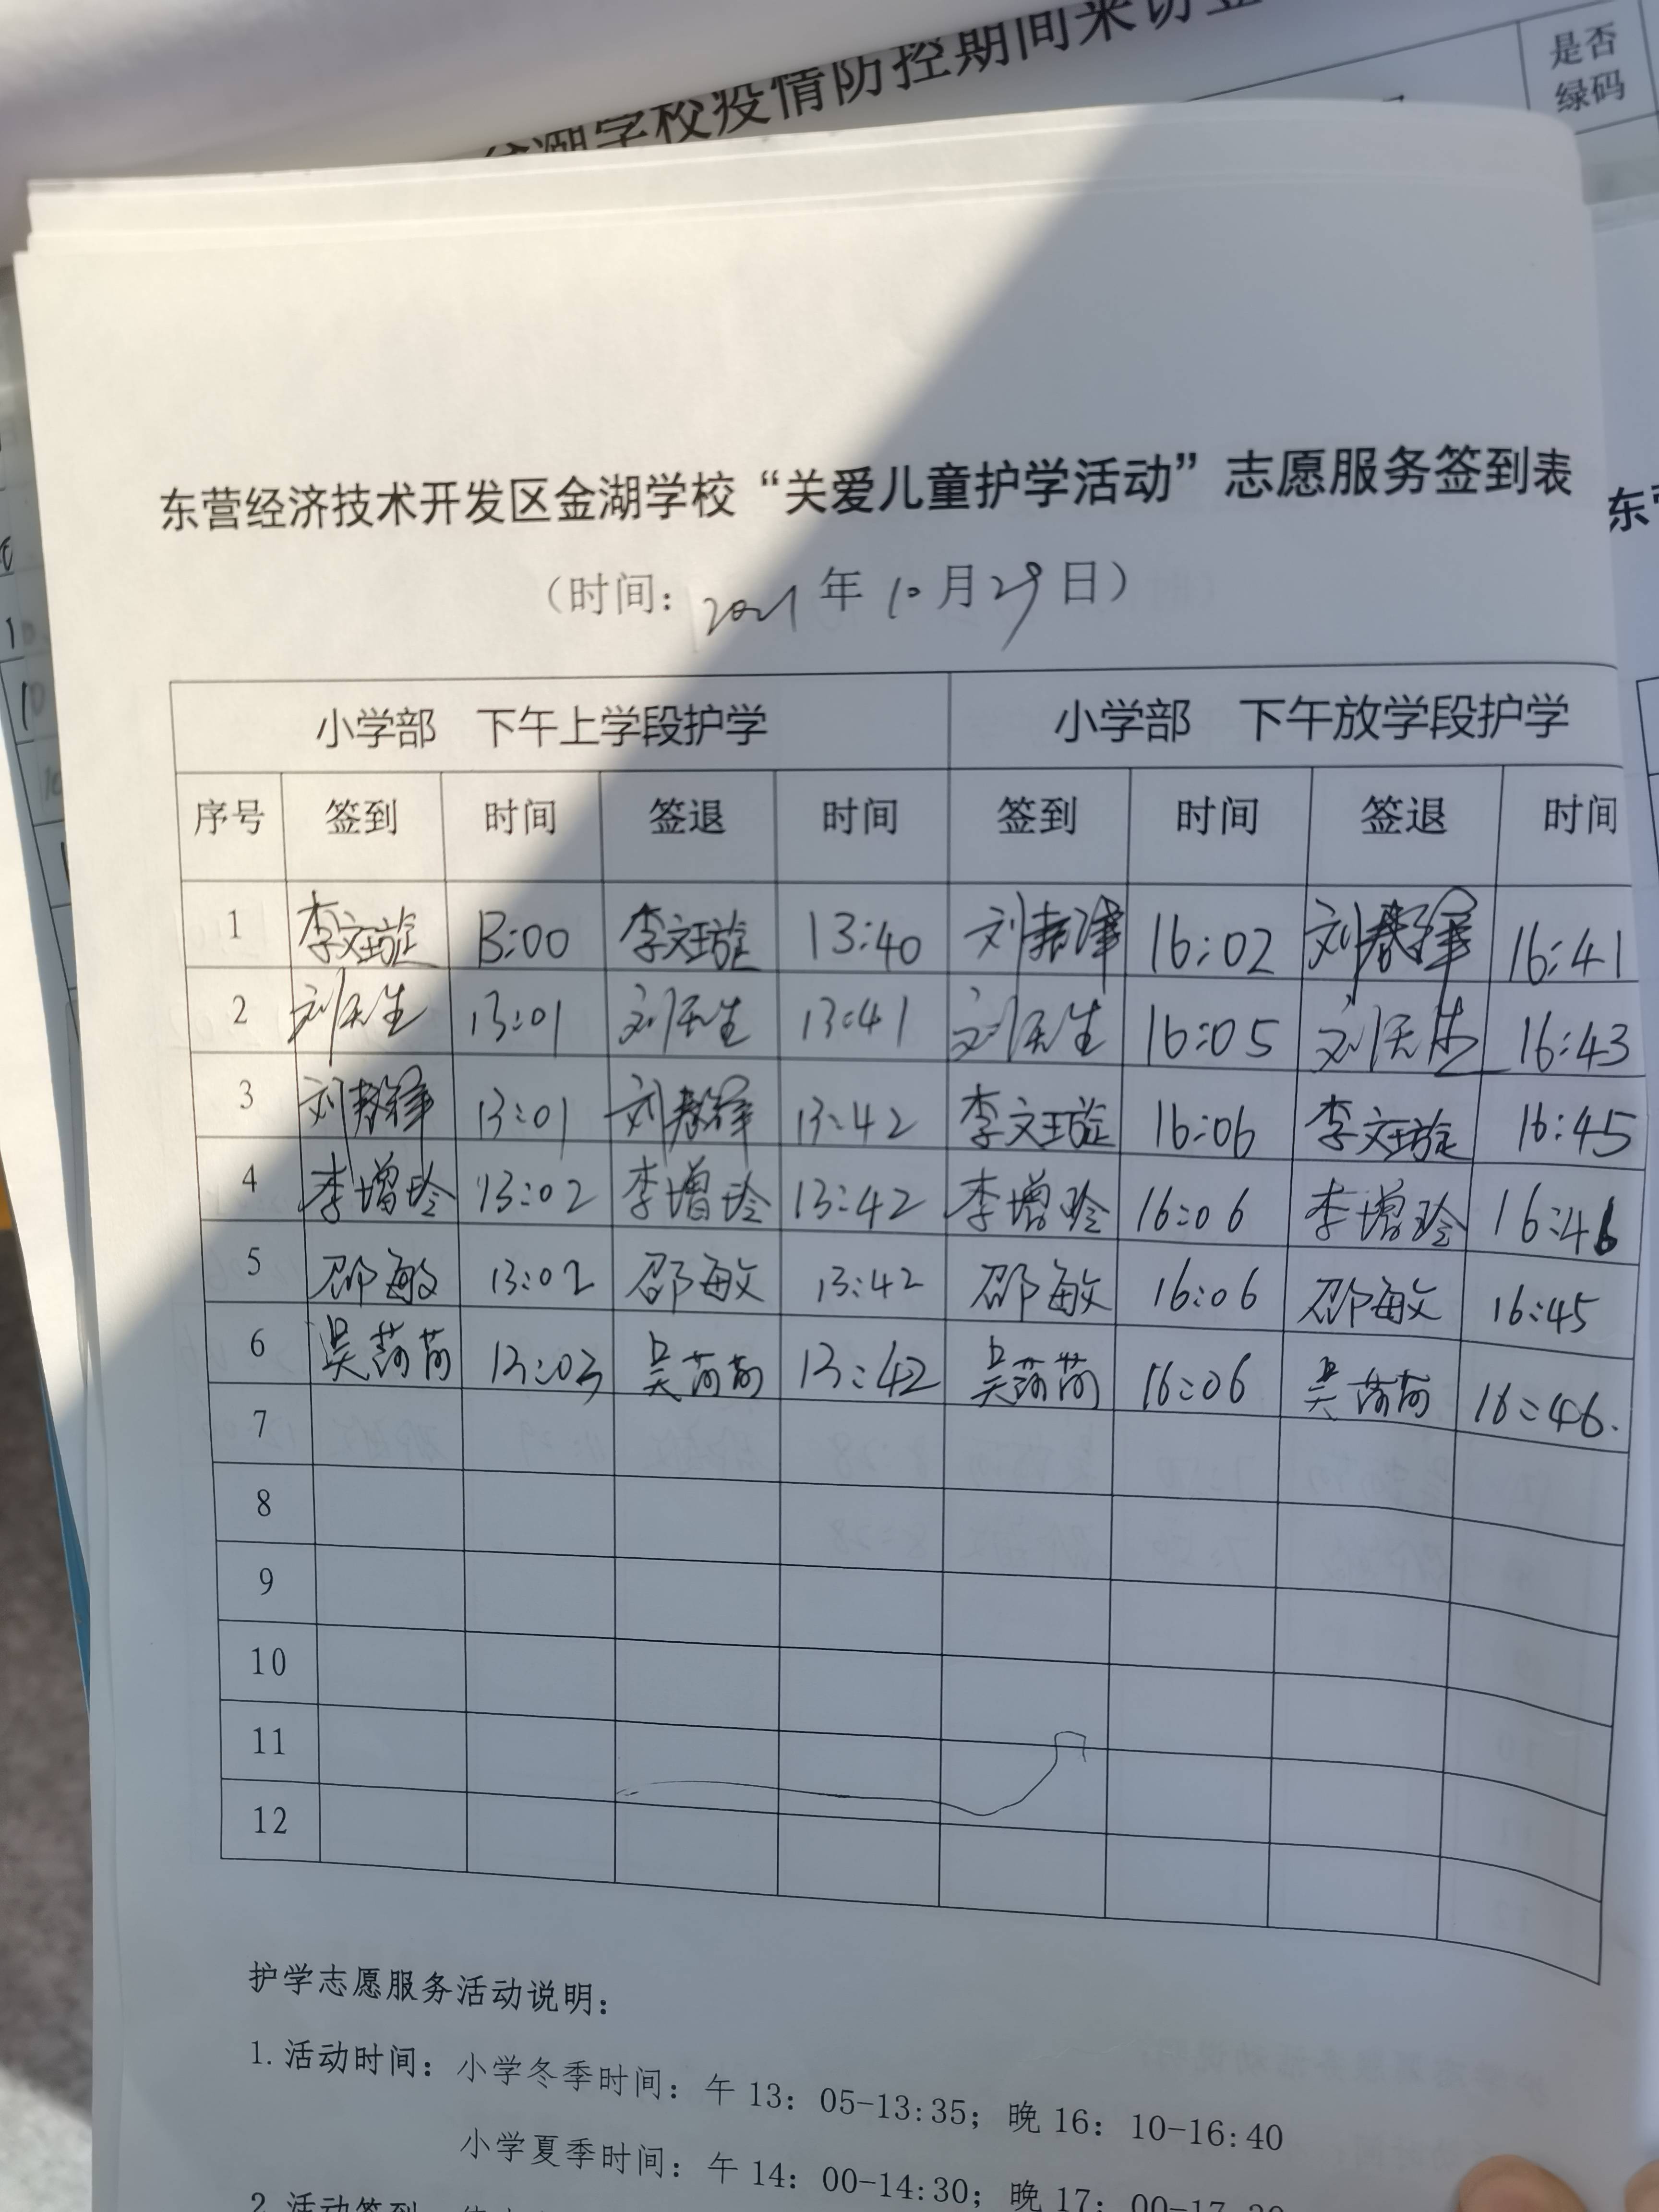 湖学校疫情防控期间来访登
是否
绿码
东营经济技术开发区金湖学校“关爱儿童护学活动”志愿服务签到表
（时间：2021年10月29日）
小学部 下午上学段护学 小学部 下午放学段护学
序号 签到 时间 签退 时间 签到 时间 签退 时间
1 李文璇 13:00 李文璇 13:40 16:02 16:41
2 13:01 13:41 16:05 16:43
3 13:01 13:42 李文璇 16:06 李文璇 16:45
4 李增玲 13:02 李增玲 13:42 李增玲 16:06 李增玲 16:46
5 邵敏 13:02 邵敏 13:42 邵敏 16:06 邵敏 16:45
6 吴荷荷 13:03 吴荷荷 13:42 吴荷荷 16:06 吴荷荷 16:46.
7
8
9
10
11
12
护学志愿服务活动说明：
1.活动时间：小学冬季时间：午13：05-13:35；晚16：10-16:40
小学夏季时间：午14：00-14:30；晚17：00-17:30
2.活动签到